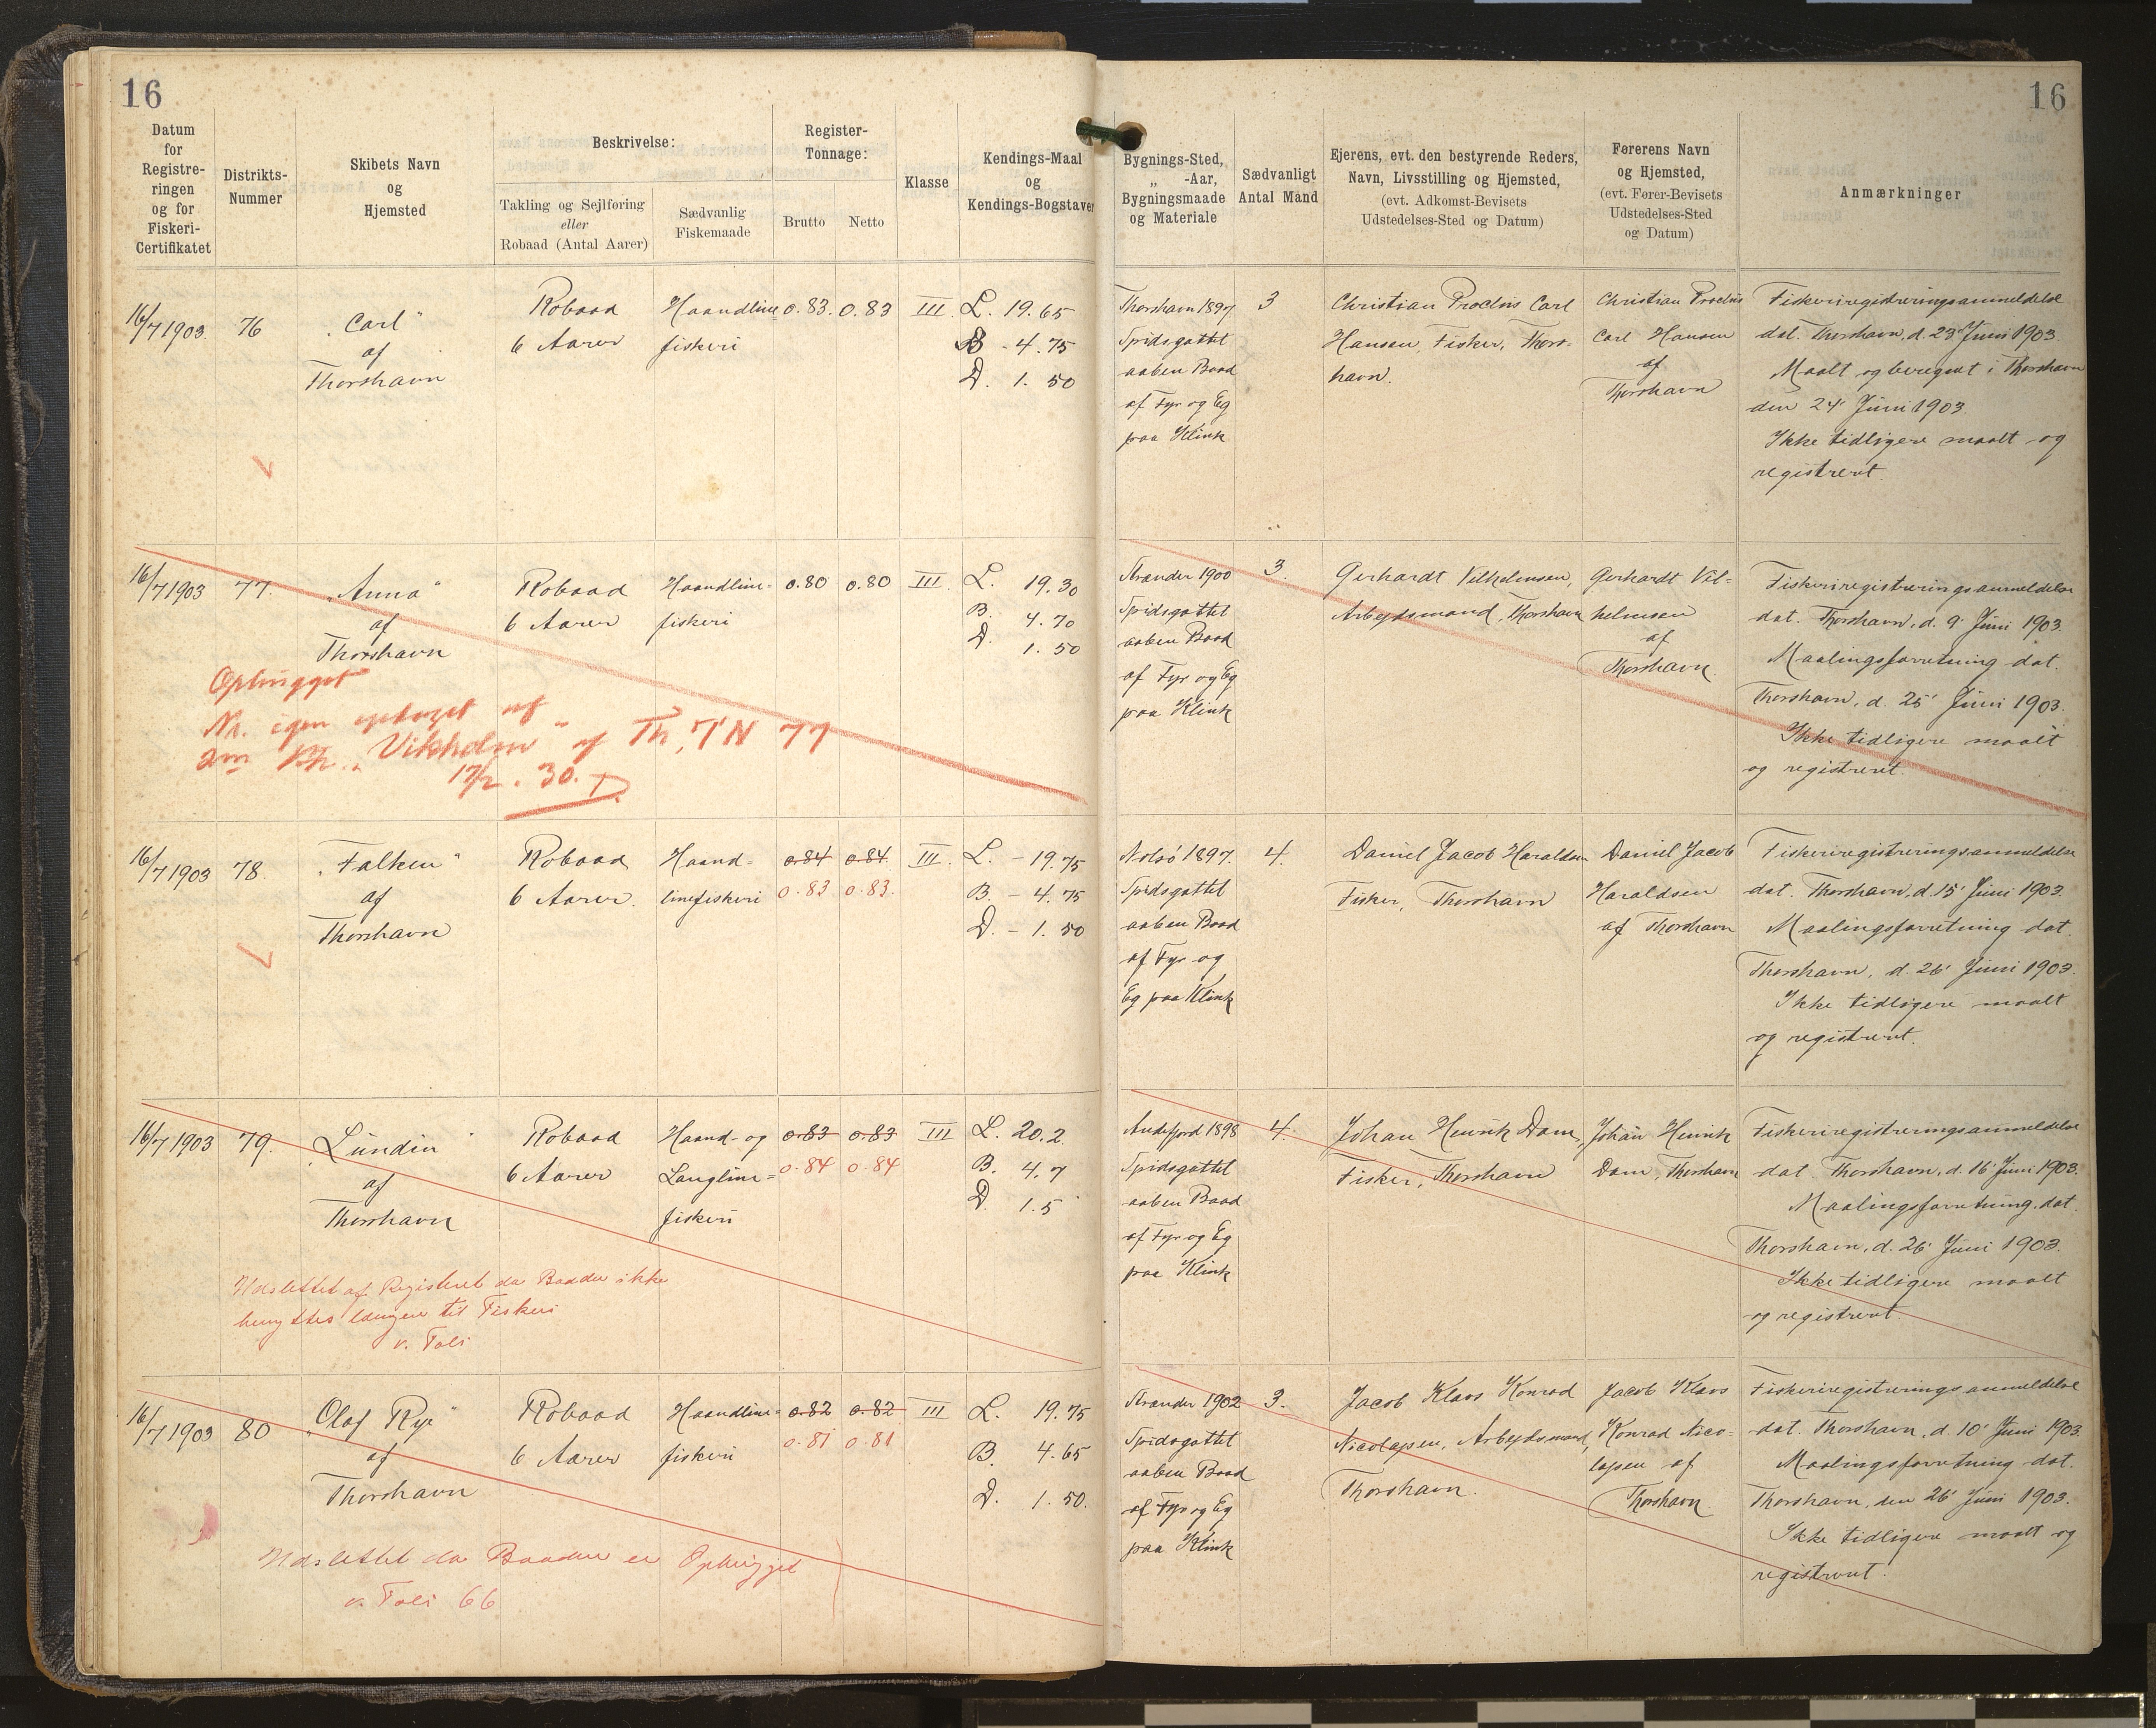 16
16
Datum
for
Registre-
ringen
og for
Fiskeri-
Certifikatet
Distrikts-
Nummer
Skibets Navn
og
Hjemsted
Beskrivelse:
Takling og Sejlføring
eller
Robaad (Antal Aarer)
Sædvanlig
Fiskemaade
Register-
Tonnage:
Brutto
Netto
Klasse
Kendings-Maal
og
Kendings-Bogstaver
Bygnings-Sted,
„ -Aar,
Bygningsmaade
og Materiale
Sædvanligt
Antal Mand
Ejerens, evt. den bestyrende Reders,
Navn, Livsstilling og Hjemsted,
(evt. Adkomst-Bevisets
Udstedelses-Sted og Datum)
Førerens Navn
og Hjemsted,
(evt. Fører-Bevisets
Udstedelses-Sted
og Datum)
Anmærkninger
16/7 1903
76
„Carl"
af
Thorshavn
Robaad
6 Aarer
Haandline
fiskeri
0.83.
0.83
III.
L. 19.65
B - 4.75
D. 1.50
Thorshavn 1897.
Spidsgattet
aaben Baad
af Fyr og Eg
paa Klink
3
Christian Proclvis Carl
Hansen, Fisker, Thors-
havn.
Christian Proclvis
Carl Hansen
af
Thorshavn
Fiskeriregistreringsanmeldelse
dat. Thorshavn, d. 23' Juni 1903.
Maalt og beregnet i Thorshavn
den 24' Juni 1903.
Ikke tidligere maalt og
registreret.
16/7 1903
77.
„Anna"
af
Thorshavn
Robaad
6 Aarer
Haandline=
fiskeri
0.80
0.80
III.
L. 19.30
B. 4.70
D. 1.50
Strander 1900
Spidsgattet
aaben Baad
af Fyr og Eg
paa Klink
3.
Gerhardt Vilhelmsen,
Arbejdsmand, Thorshavn
Gerhardt Vil=
helmsen
af
Thorshavn.
Fiskeriregistreringsanmeldelse
dat. Thorshavn, d. 9' Juni 1903.
Maalingsforretning dat.
Thorshavn, d. 25' Juni 1903.
Ikke tidligere maalt
og registreret.
Ophugget
Nr. igen optaget af
„Vikholm" af Th, TN 77
17/2. 30.
16/7 1903
78.
„Falken"
af
Thorshavn
Robaad
6 Aarer.
Haand=
linefiskeri
0.84
0.84.
0.83
0.83.
III.
L. - 19.75
B. - 4.75
D. - 1.50
Nolsö 1897.
Spidsgattet
aaben Baad
af Fyr og
Eg paa Klink
4.
Daniel Jacob Haraldsen
Fisker, Thorshavn
Daniel Jacob
Haraldsen
af Thorshavn
Fiskeriregistreringsanmeldelse
dat. Thorshavn, d. 15' Juni 1903.
Maalingsforretning dat.
Thorshavn, d. 26' Juni 1903.
Ikke tidligere maalt
og registreret.
16/7 1903
79.
„Lundin"
af
Thorshavn
Robaad
6 Aarer
Haand- og
Langline=
fiskeri
0.83
0.83
0.84
0.84
III
L. 20.2.
B. 4.7
D. 1.5
Andefjord 1898
Spidsgattet
aaben Baad
af Fyr og Eg
paa Klink
4.
Johan Henrik Dam,
Fisker, Thorshavn
Johan Henrik
Dam, Thorshavn
Fiskeriregistreringsanmeldelse
dat. Thorshavn, d. 16' Juni 1903.
Maalingsforretning dat.
Thorshavn, d. 26' Juni 1903.
Ikke tidligere maalt
og registreret.
Udslettet af Registeret da Baaden ikke
benyttes længere til Fiskeri
v. Foli
16/7 1903
80
„Olaf Rye"
af
Thorshavn
Robaad
6 Aarer
Haandline=
fiskeri
0.82
0.82
0.81
0.81
III
L. 19.75
B. 4.65
D. 1.50.
Strander 1902
Spidsgattet
aaben Baad
af Fyr og Eg
paa Klink
3.
Jacob Klavs Konrad
Nicolajsen, Arbejdsmand,
Thorshavn.
Jacob Klavs
Konrad Nico=
lajsen af
Thorshavn.
Fiskeriregistreringsanmeldelse
dat. Thorshavn, d. 10' Juni 1903.
Maalingsforretning dat.
Thorshavn, den 26' Juni 1903.
Ikke tidligere maalt og
registreret.
Udslettet da Baaden er Ophugget
v. Foli 66